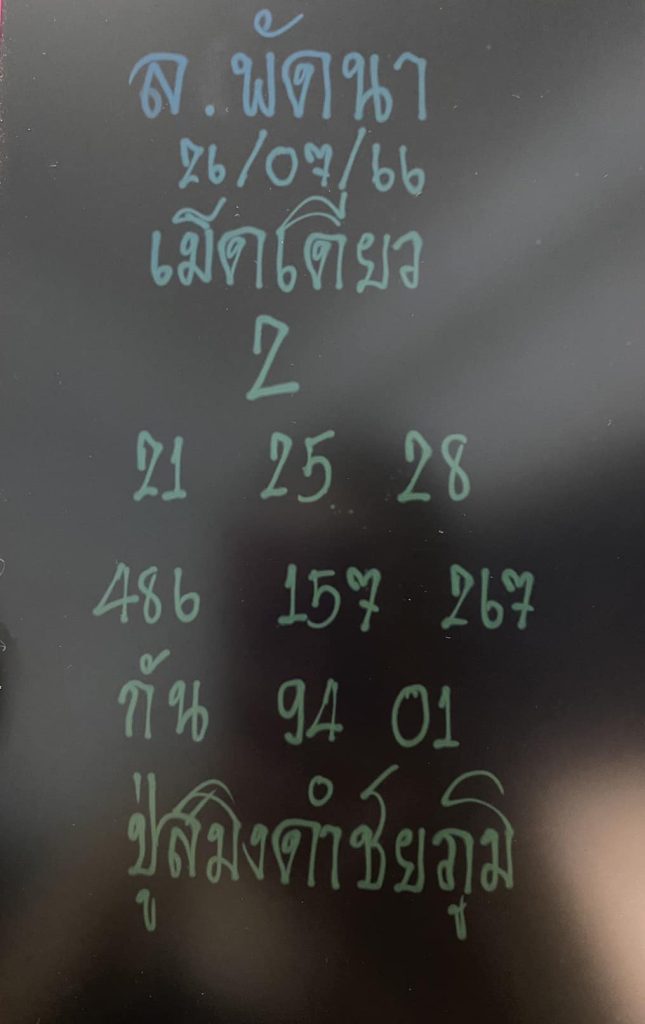 ล.พัดนา
26/07/66
เม็ดเดียว
2
21 25 28
486 157 267
กัน 94 01
ปู่สมิงดำชัยภูมิ